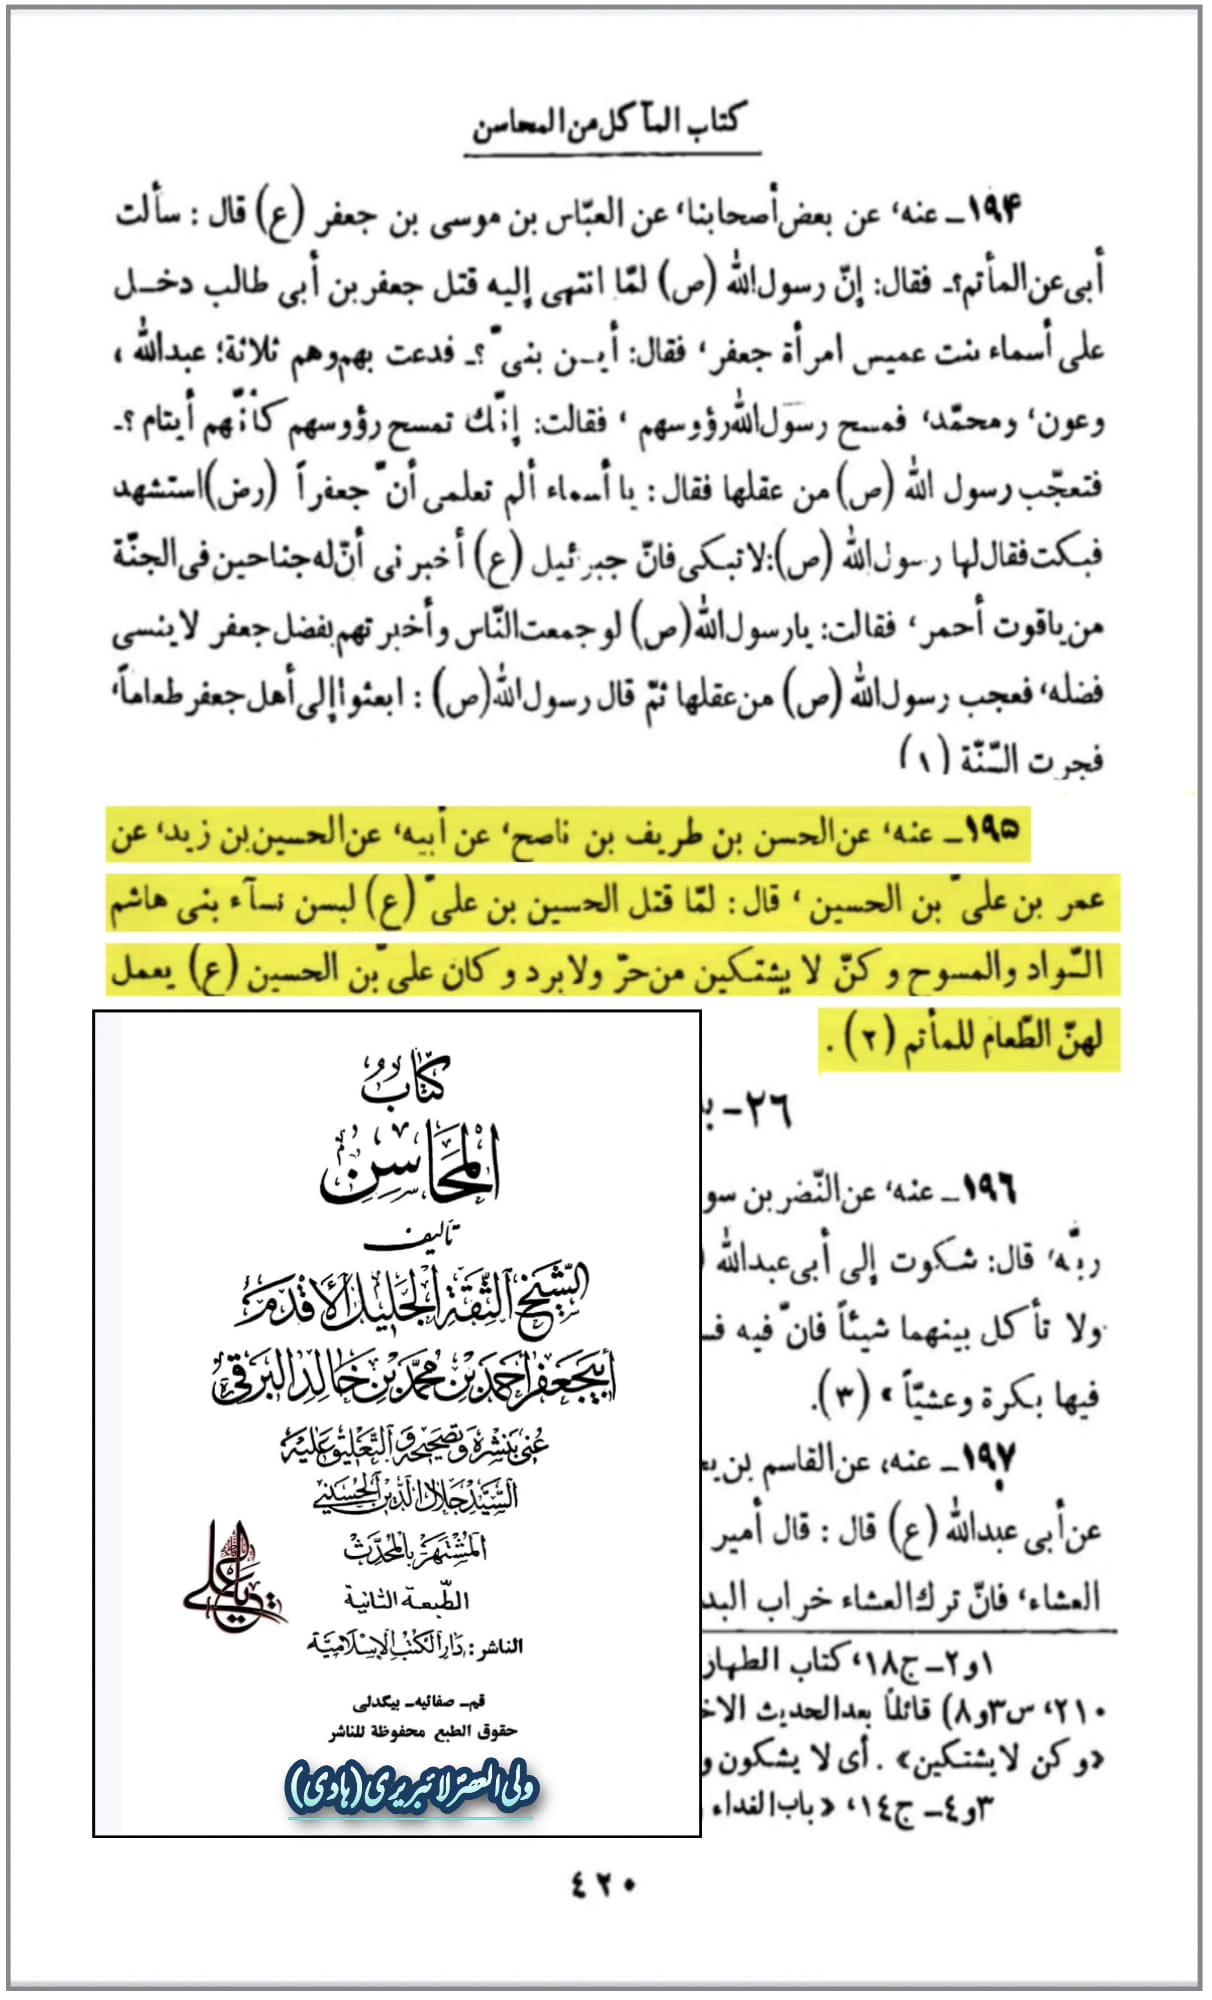 كتاب المآكل من المحاسن
١٩۴ـ عنه، عن بعض أصحابنا، عن العبّاس بن موسى بن جعفر (ع) قال : سألت
أبى عن المأتم؟ـ فقال: إنّ رسول الله (ص) لمّا انتهى إليه قتل جعفر بن أبى طالب دخـل
على أسماء بنت عميس امرأة جعفر، فقال: أيـن بنىّ ؟ـ فدعت بهم وهم ثلاثة؛ عبدالله ،
وعون، ومحمّد، فمسح رسول الله رؤوسهم ، فقالت: إنّك تمسح رؤوسهم كأنّهم أيتام ؟ـ
فتعجّب رسول الله (ص) من عقلها فقال : يا أسماء ألم تعلمى أنّ جعفراً (رض) استشهد
فبكت فقال لها رسول الله (ص): لا تبكى فانّ جبرئيل (ع) أخبرنى أنّ له جناحين فى الجنّة
من ياقوت أحمر، فقالت: يا رسول الله (ص) لو جمعت النّاس وأخبرتهم بفضل جعفر لا ينسى
فضله، فعجب رسول الله (ص) من عقلها ثمّ قال رسول الله (ص) : ابعثوا إلى أهل جعفر طعاماً،
فجرت السّنّة (١)
١٩۵ـ عنه، عن الحسن بن طريف بن ناصح، عن أبيه، عن الحسين بن زيد، عن
عمر بن علىّ بن الحسين ، قال : لمّا قتل الحسين بن علىّ (ع) لبسن نسآء بنى هاشم
السّواد والمسوح و كنّ لا يشتكين من حرّ ولا برد و كان علىّ بن الحسين (ع) يعمل
لهنّ الطّعام للمأتم (٢) .
٢٦-
١٩٦ـ عنه، عن النّضر بن سو
ربّه، قال: شكوت إلى أبى عبدالله
ولا تأكل بينهما شيئاً فانّ فيه فـ
فيها بكرة وعشيّاً » (٣).
١٩٧ـ عنه، عن القاسم بن يح
عن أبى عبدالله (ع) قال : قال أمير
العشاء، فانّ ترك العشاء خراب البد
١و٢ـ ج١٨، كتاب الطهار
٢١٠، س٣و٨) قائلاً بعد الحديث الاخ
«و كن لا يشتكين» . أى لا يشكون و
٣و٤ـ ج١٤، «باب الغداء
٤٢٠
كتاب
المحاسن
تأليف
الشيخ الثقة الجليل الأقدم
أبي جعفر أحمد بن محمد بن خالد البرقي
عني بنشره وتصحيحه والتعليق عليه
السيد جلال الدين الحسيني
المشتهر بالمحدث
الطّبعة الثانية
الناشر : دار الكتب الإسلامية
قم ـ صفائيه ـ بيگدلى
حقوق الطبع محفوظة للناشر
يا علي
ولی العصر لائبریری (ہادی)